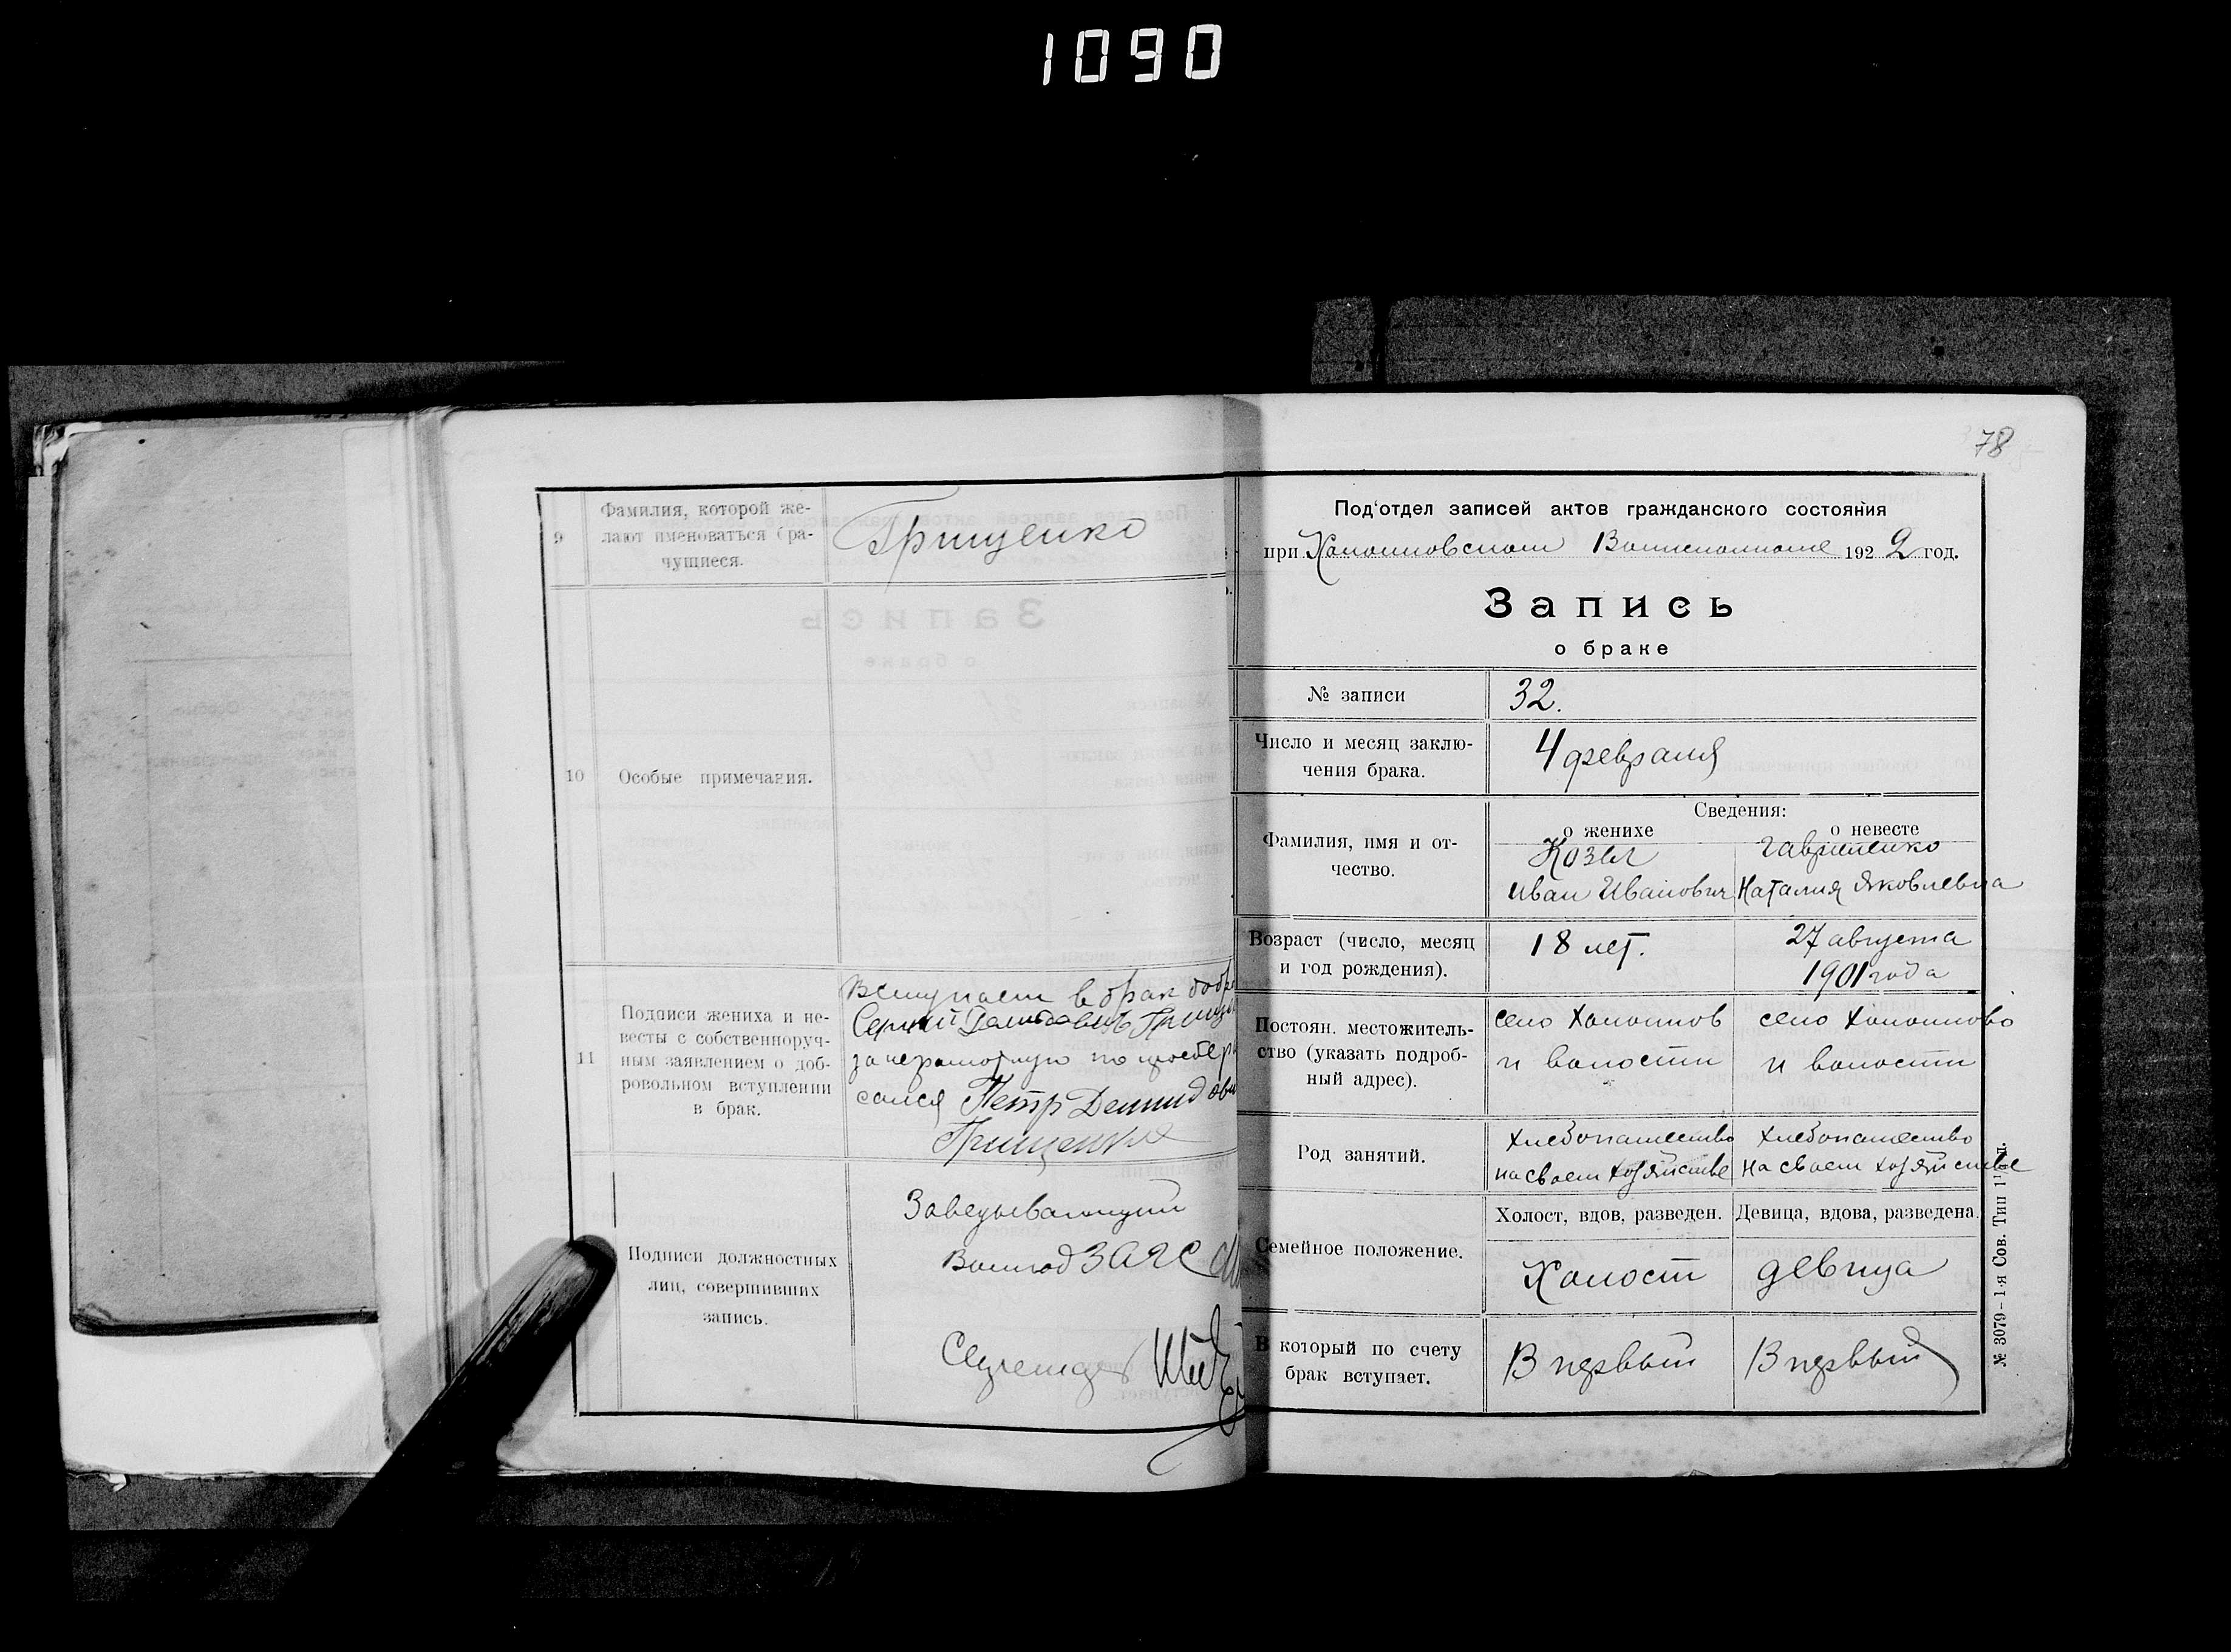 1090
9
Фамилия, которой же-
лают именоваться бра-
чущиеся.
Грищенко
10
Особые примечания.
11
Подписи жениха и не-
весты с собственноруч-
ным заявлением о доб-
ровольном вступлении
в брак.
Вступаем в брак добр
Сергий Грищ
за неграмотную по
сался Петр Демидови
Грищенко
Подписи должностных
лиц, совершивших
запись.
Заведывающий
ЗАГС
78
Под'отдел записей актов гражданского состояния
при 1922 год.
Запись
о браке
№ записи
32.
Число и месяц заклю-
чения брака.
4 февраля
Сведения:
Фамилия, имя и от-
чество.
о женихе
о невесте
Козел
Гавриленко
Иван Иванович
Наталия Яковлевна
Возраст (число, месяц
и год рождения).
18 лет.
27 августа
1901 года
Постоян. местожитель-
ство (указать подроб-
ный адрес).
село
и волости
село
и волости
Род занятий.
Хлебопашество
на своем хозяйстве
Хлебопашество
на своем хозяйстве
Семейное положение.
Холост, вдов, разведен.
Девица, вдова, разведена.
Холост
девица
В который по счету
брак вступает.
В первый
В первый
№ 3079–1-я Сов. Тип